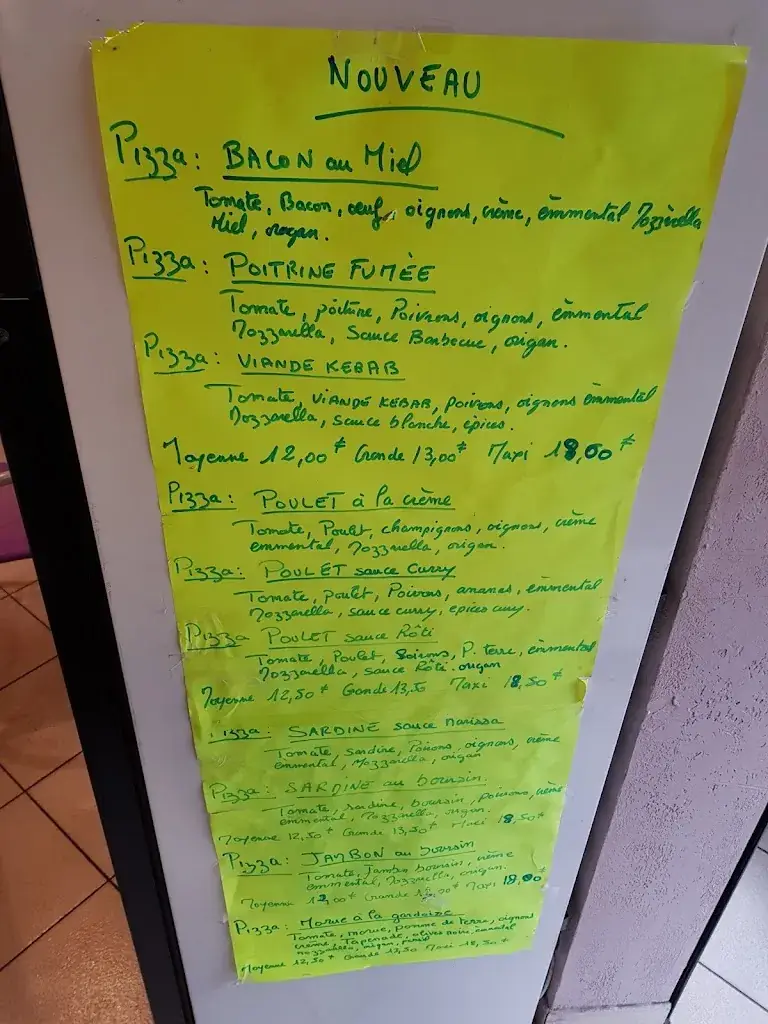 NOUVEAU
Pizza: BACON au Miel
Tomate, Bacon, œuf, oignons, crème, èmmental Mozzarella
Miel, origan.
Pizza: POITRINE FUMÈE
Tomate, poitrine, Poivrons, oignons, èmmental
Mozzarella, Sauce Barbecue, origan.
Pizza: VIANDE KEBAB
Tomate, VIANDE KEBAB, poivrons, oignons èmmental
Mozzarella, sauce blanche, épices.
Moyenne 12,00€ Grande 13,00€ Maxi 18,00€
Pizza: POULET à la crème
Tomate, Poulet, champignons, oignons, crème
emmental, Mozzarella, origan.
Pizza: POULET sauce Curry
Tomate, poulet, Poivrons, ananas, èmmental
Mozzarella, sauce curry, épices curry.
Pizza POULET sauce Rôti
Tomate, Poulet, Poivrons, P. terre, èmmental
Mozzarella, sauce Rôti. origan
Moyenne 12,50€ Grande 13,50 Maxi 18,50€
Pizza: SARDINE sauce Harissa
Tomate, sardine, Poivrons, oignons, crème
emmental, Mozzarella, origan
Pizza: SARDINE au boursin.
Tomate, sardine, boursin, poivrons, crème
emmental, Mozzarella, origan.
Moyenne 12,50€ Grande 13,50€ Maxi 18,50€
Pizza: JAMBON au boursin
Tomate, Jambon boursin, crème
emmental, Mozzarella, origan.
Moyenne 12,00€ Grande Maxi 18,00€
Pizza: Morue à la
Tomate, morue, pomme de terre, oignons
crème, Tapenade, olives noire, emmental
mozzarella, origan, persil
Moyenne 12,50€ Grande 13,50 Maxi 18,50€